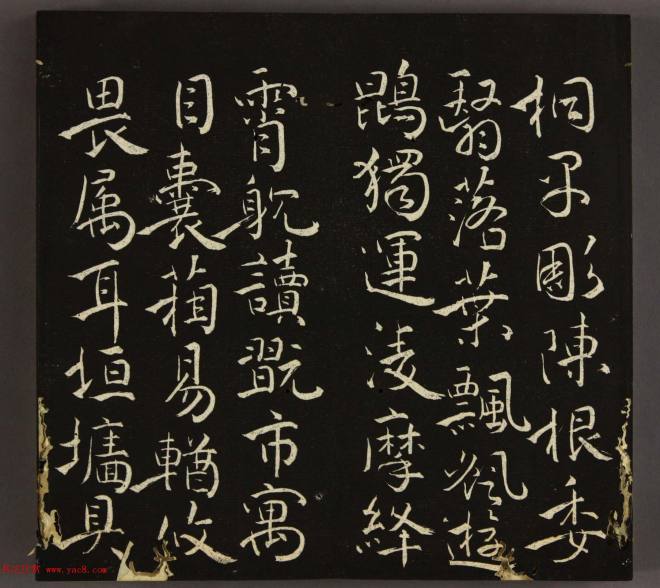 桐早彫陳根委
翳落葉飄颻遊
鵾獨運凌摩絳
霄躭讀翫市寓
目囊箱易輶攸
畏属耳垣墻具
www.yac8.com